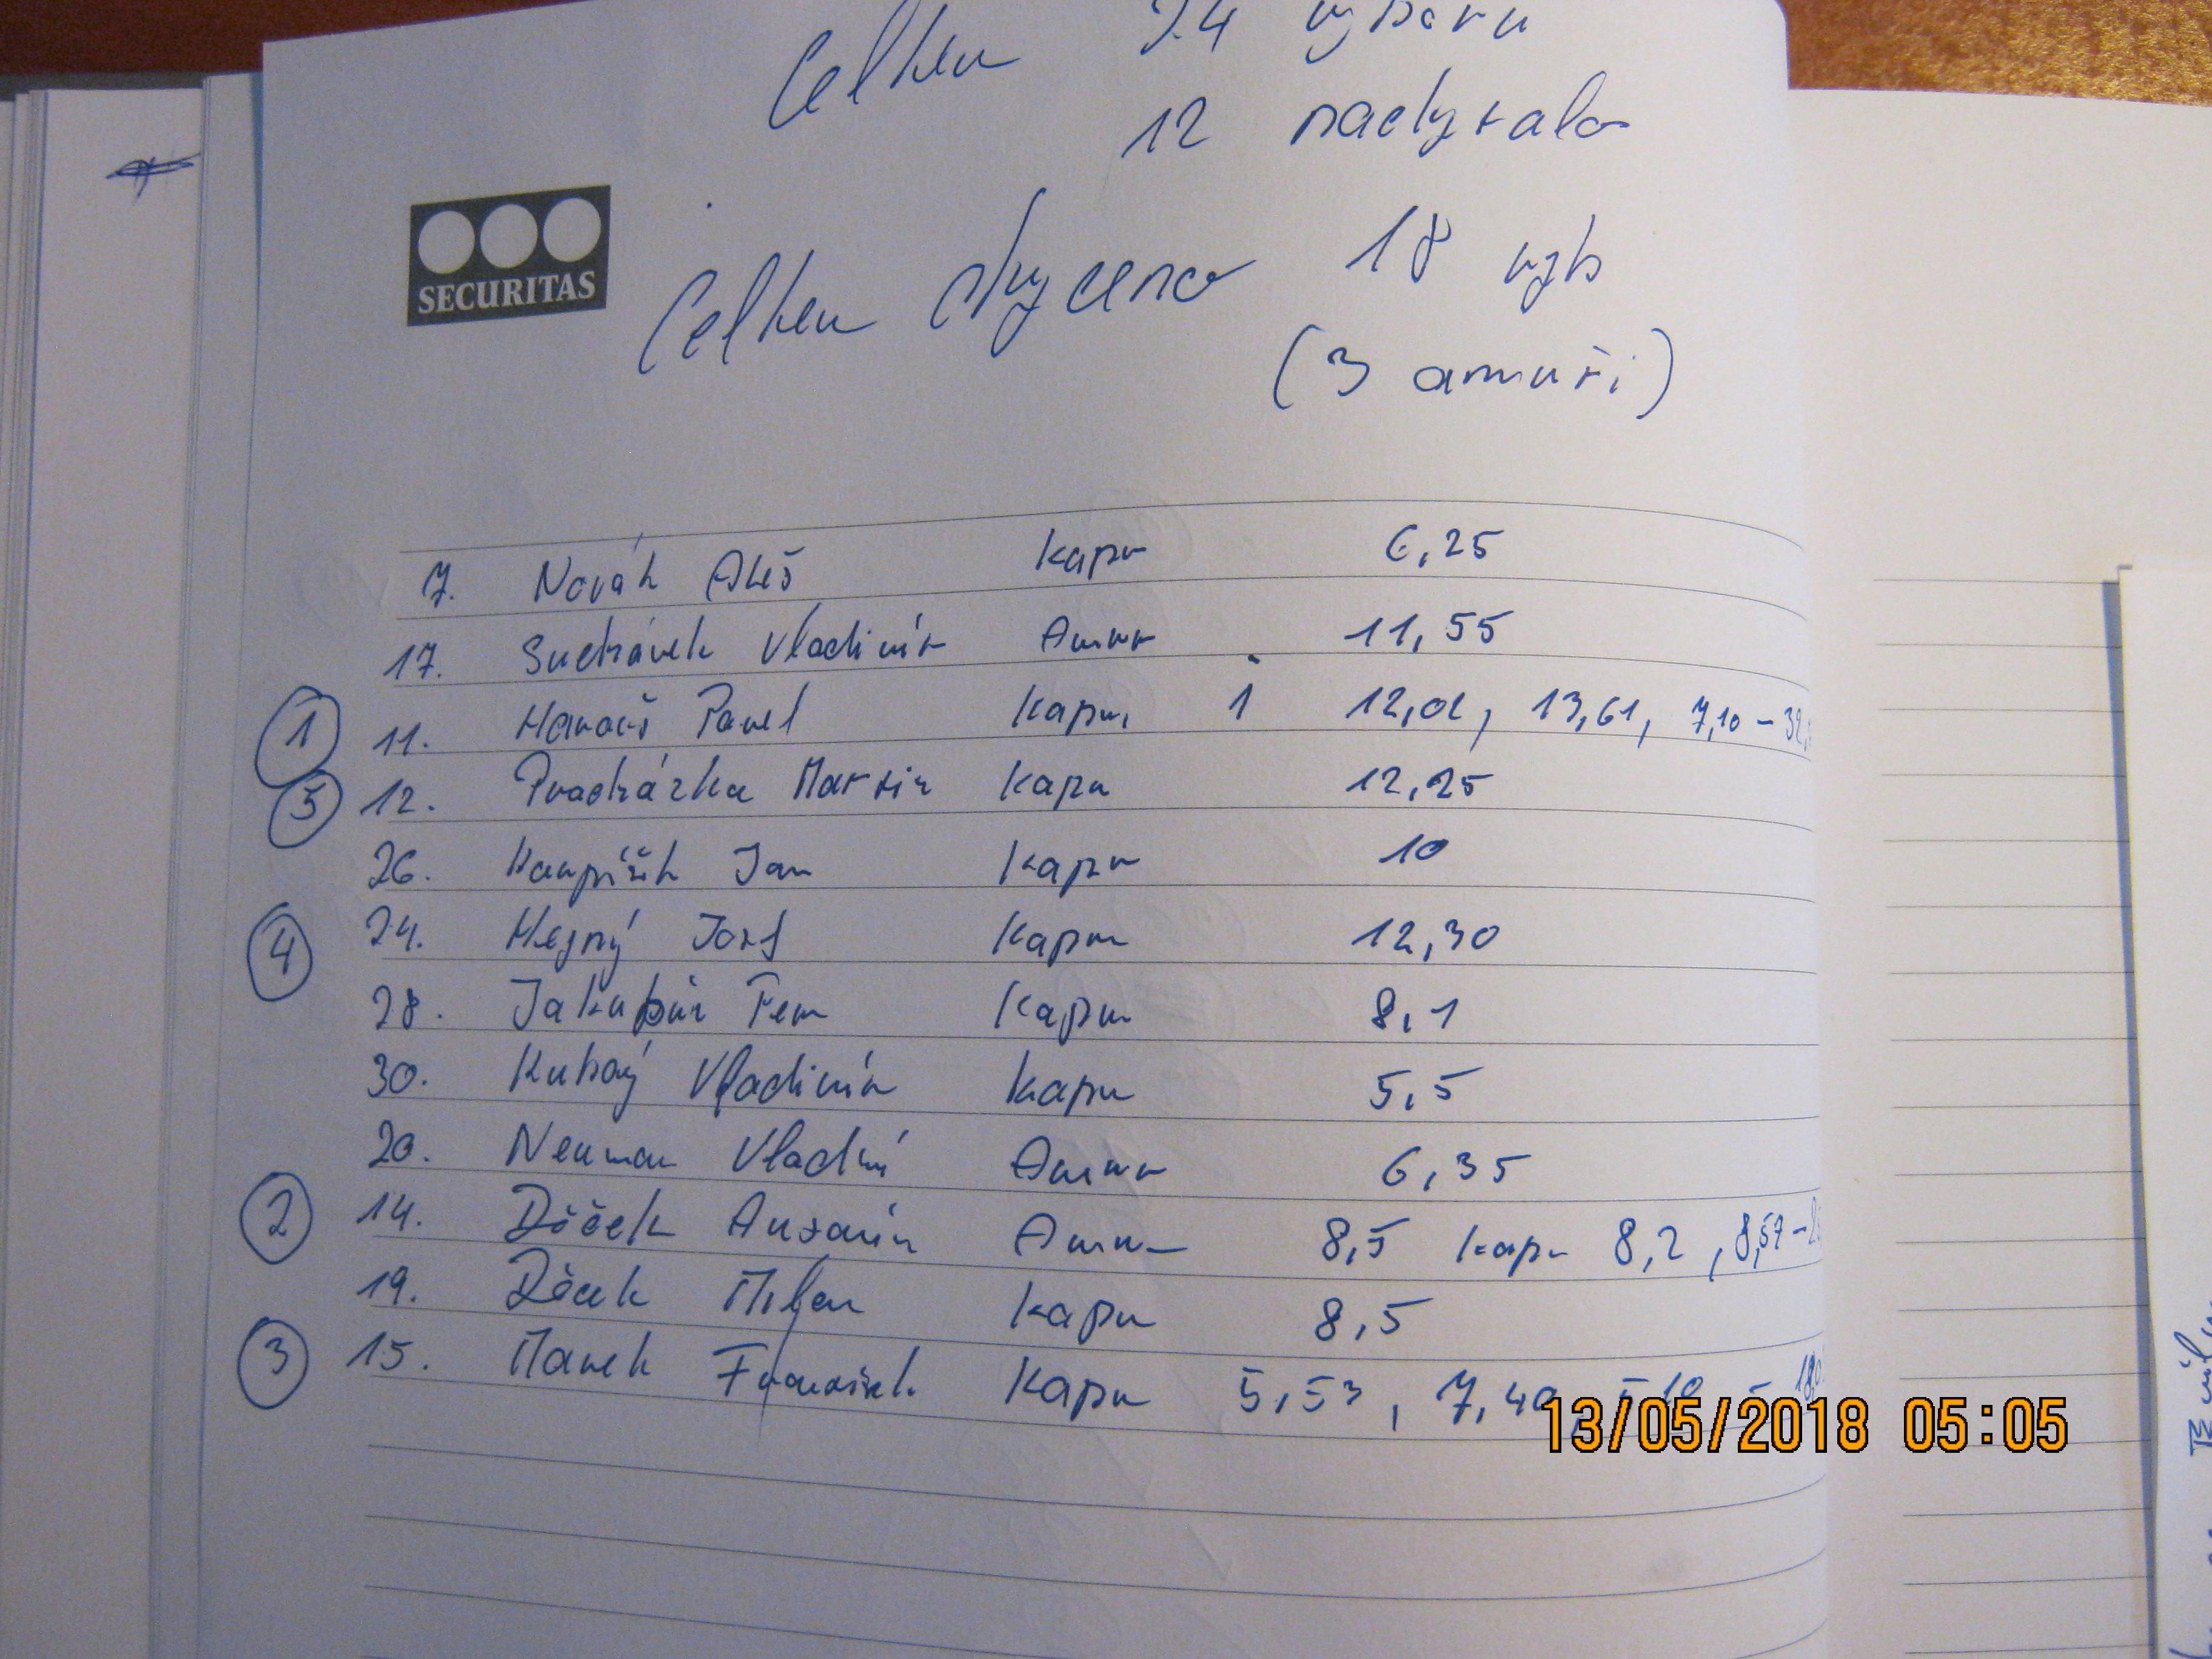 Celkem 24 rybářů
12 nachytalo
SECURITAS
Celkem chyceno 18 ryb
(3 amuři)
7. Novák Aleš Kapr 6,25
17. Suchánek Vladimír Amur 11,55
1 11. Pavel Kapr, 1 12,02, 13,61, 7,10 -
5 12. Procházka Martin Kapr 12,25
26. Jan Kapr 10
4 24. Hejný Josef Kapr 12,30
28. Kapr 8,1
30. Vladimír Kapr 5,5
20. Neuman Vladimír Amur 6,35
2 14. Antonín Amur 8,5 Kapr 8,2, 8,57 -
19. Milan Kapr 8,5
3 15. Marek František Kapr 5,53, 7,40,
13/05/2018 05:05